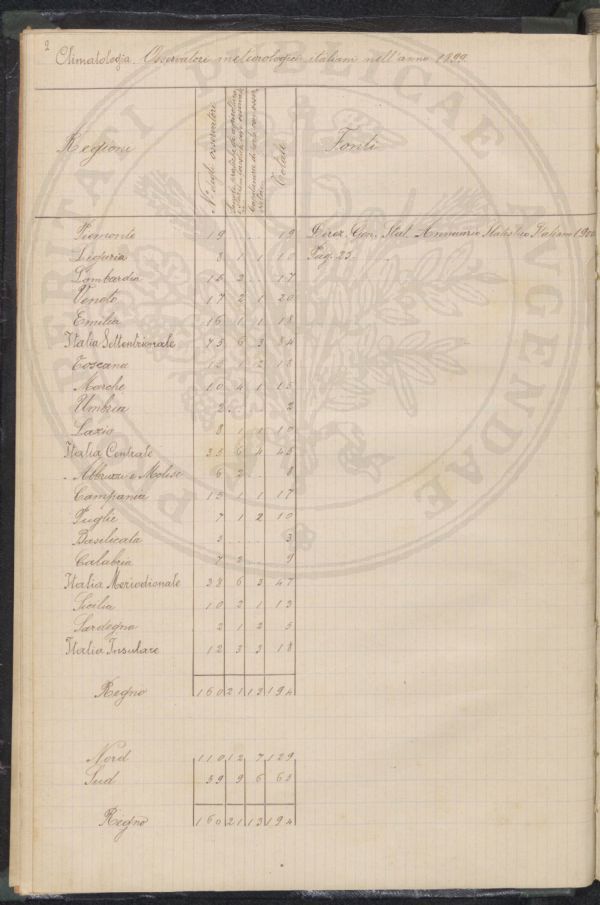 2
Climatologia. Osservatori meteorologici italiani nell'anno 1899
Regioni N° degli osservatori Totale Fonti
Piemonte 19 . . . 19 Direz. Gen. Stat. Annuario Statistico Italiano 1900
Liguria 8 1 1 10 Pag. 23
Lombardia 15 2 . . 17
Veneto 17 2 1 20
Emilia 16 1 1 18
Italia Settentrionale 75 6 3 84
Toscana 1 2
Marche 10 4 1 15
Umbria 2 . . . 2
Lazio 8 1 1 10
Italia Centrale 35 6 4 45
Abbruzzi e Molise 6 2 . . 8
Campania 15 1 1 17
Puglie 7 1 2 10
Basilicata 3 . . . 3
Calabria 7 2 . . 9
Italia Meridionale 38 6 3 47
Sicilia 10 2 1 13
Sardegna 2 1 2 5
Italia Insulare 12 3 3 18
Regno 160 21 13 194
Nord 110 12 7 129
Sud 9 6
Regno 160 21 13 194
PERTRACTANDAE PUBLICAE UTILITATI